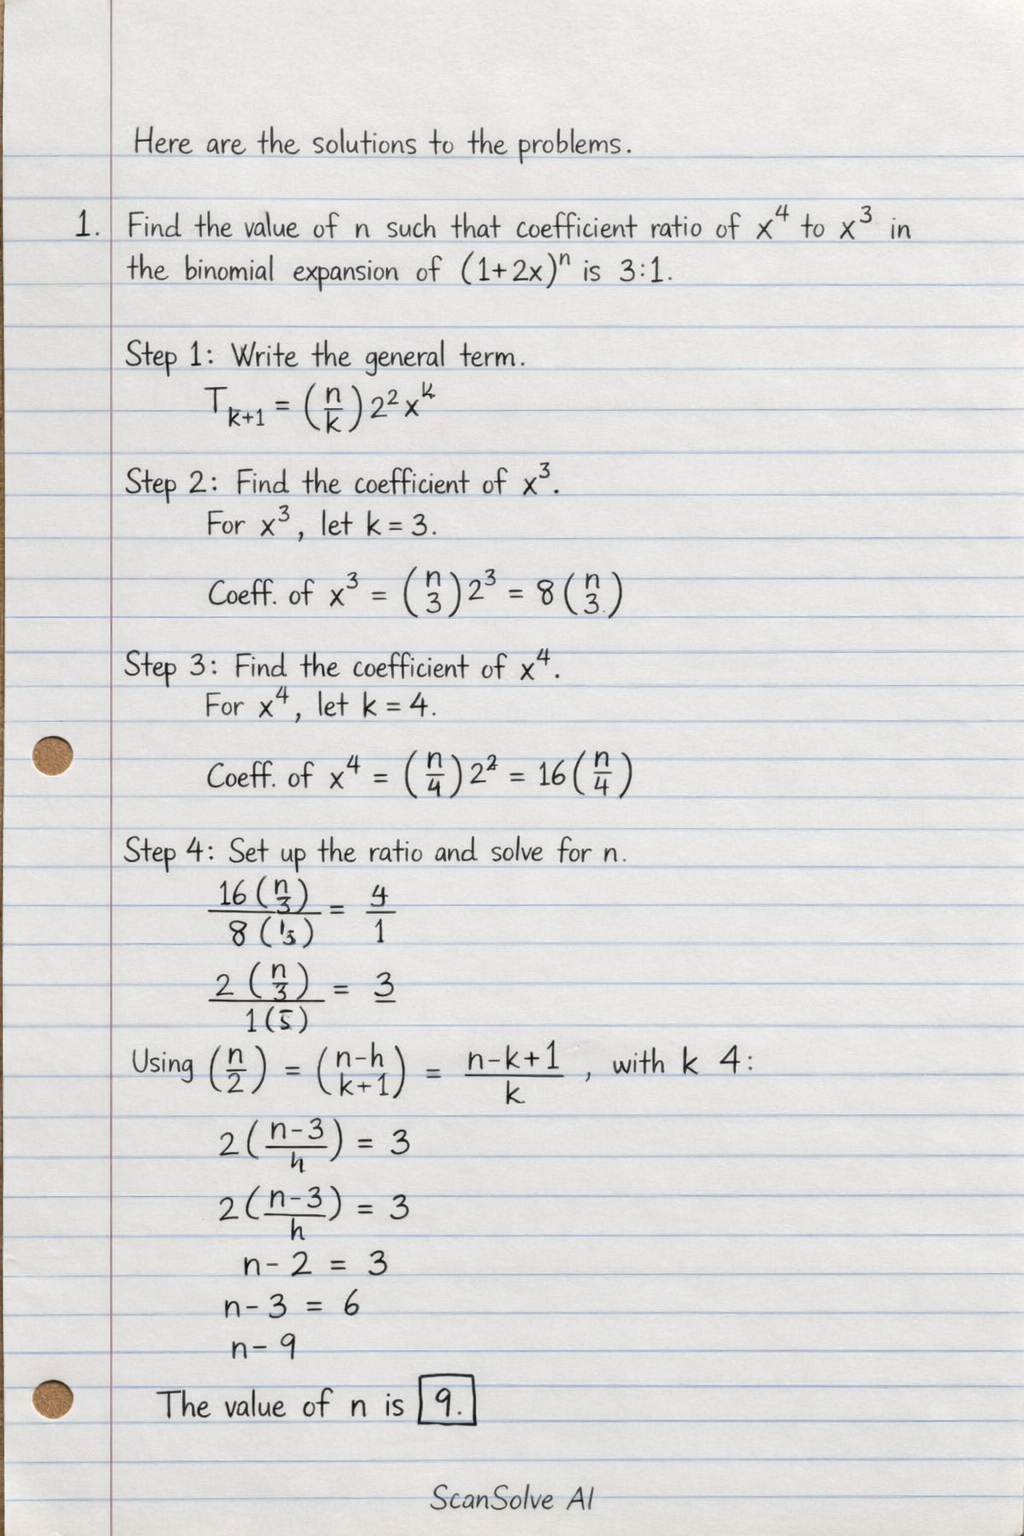 Here are the solutions to the problems.
1. Find the value of n such that coefficient ratio of x⁴ to x³ in
the binomial expansion of (1+2x)ⁿ is 3:1.
Step 1: Write the general term.
T_{k+1} = (n/k) 2² x^k
Step 2: Find the coefficient of x³.
For x³, let k = 3.
Coeff. of x³ = (n 3) 2³ = 8 (n 3.)
Step 3: Find the coefficient of x⁴.
For x⁴, let k = 4.
Coeff. of x⁴ = (n/4) 2² = 16 (n/4)
Step 4: Set up the ratio and solve for n.
16 (n/3) / 8 ( ) = 4/1
2 (n/3) / 1 (5) = 3
Using (n/2) = (n-h k+1) = n-k+1 / k , with k 4:
2 (n-3 / h) = 3
2 (n-3 / h) = 3
n - 2 = 3
n - 3 = 6
n - 9
The value of n is 9.
ScanSolve AI